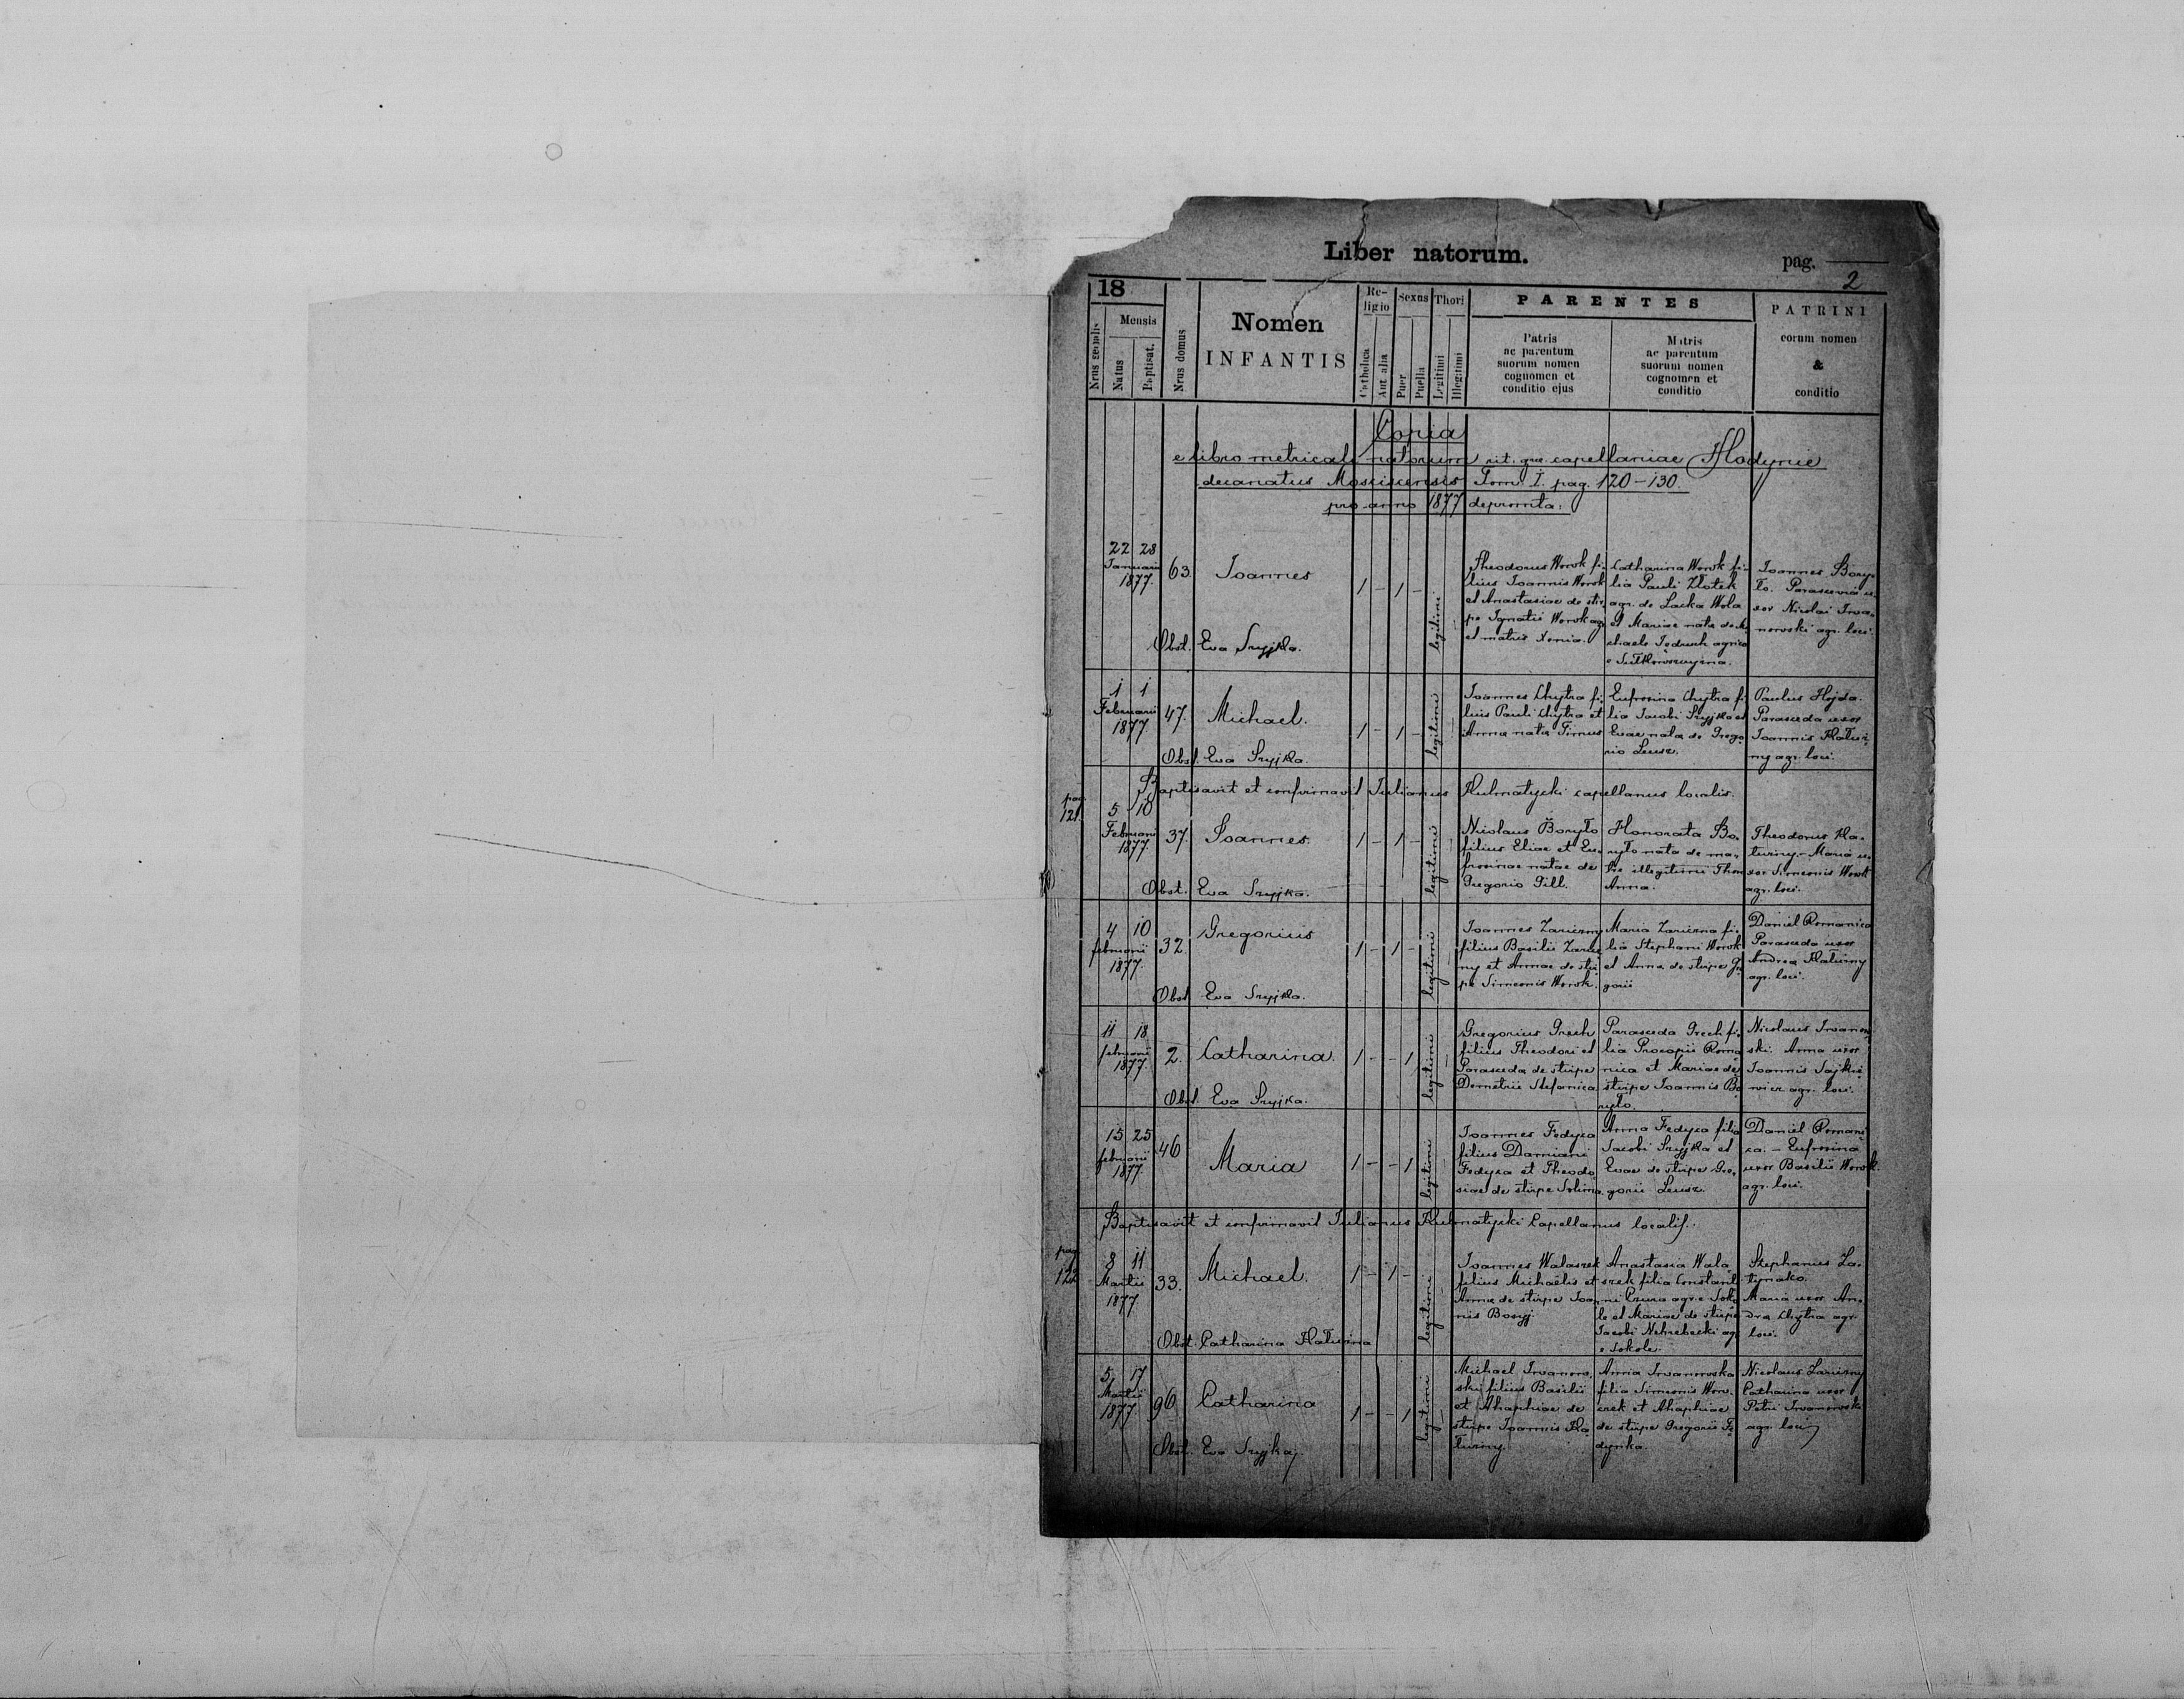 Liber natorum.
pag. 2
18
Nrus serialis
Mensis
Natus
Baptisat.
Nrus domus
Nomen
INFANTIS
Re-
ligio
Catholica
Aut alia
Sexus
Puer
Puella
Thori
Legitimi
Illegitimi
PARENTES
Patris
ac parentum
suorum nomen
cognomen et
conditio ejus
Matris
ac parentum
suorum nomen
cognomen et
conditio
PATRINI
eorum nomen
&
conditio
Copia
e libro metricali natorum rit. gr. capellaniae Hodynie
decanatus Mosciscensis Tom. I. pag. 120-130.
pro anno 1877 depromta:
22 28
Januarii
1877.
63.
Joannes
1 - 1 -
legitimi
Obst. Eva Sryjka.
Theodorus Worok fi-
lius Joannis Worok
et Anastasiae de stir-
pe Ignatii Worok agr.
et matris Xenia.
Catharina Worok fi-
lia Pauli Złotek
agr. de Lacka Wola
et Mariae nata de Mi-
chaele Jedruch agric.
e
Joannes Bory-
ło. Parascevia u-
xor Nicolai Iwa-
nowski agr. loci.
1 1
Februarii
1877.
47.
Michael.
1 - 1 -
legitimi
Obst. Eva Sryjka.
Joannes Chytra fi-
lius Pauli Chytra et
Anna nata Timus
Eufrosina Chytra fi-
lia Jacobi Sryjka et
Evae nata de Grego-
rio Leusz.
Paulus Hojda.
Parasceda uxor
Joannis Hałusz-
ny agr. loci.
Baptisavit et confirmavit Julianus Kulmatycki capellanus localis.
pag.
121.
5 10
Februarii
1877.
37.
Joannes.
1 - 1 -
legitimi
Obst. Eva Sryjka.
Nicolaus Boryło
filius Eliae et Eu-
frosinae natae de
Gregorio Gill.
Honorata Bo-
ryło nata de ma-
tre illegitimi Thori
Anna.
Theodorus Ha-
turny. - Maria u-
xor Simeonis Worok
agr. loci.
4 10
februarii
1877.
32.
Gregorius
1 - 1 -
legitimi
Obst. Eva Sryjka.
Joannes Zariczny
filius Basilii Zaricz-
ny et Annae de stir-
pe Simeonis Worok.
Maria Zariczna fi-
lia Stephani Worok
et Anna de stirpe Gre-
gorii
Daniel Romanica
Parasceda uxor
Andrea Haturny
agr. loci.
11 18
februarii
1877.
2.
Catharina.
1 - - 1
legitimi
Obst. Eva Sryjka.
Gregorius Grech
filius Theodori et
Parasceda de stirpe
Demetrii Stefanica
Parasceda Grech fi-
lia Procopii Roma-
nica et Mariae de
stirpe Joannis Bo-
ryło.
Nicolaus Iwanow-
ski. Anna uxor
Joannis Sajkie-
wicz agr. loci.
15 25
februarii
1877
46
Maria
1 - - 1
legitimi
Joannes Fedyca
filius Damiani
Fedyca et Theodo-
siae de stirpe Solima.
Anna Fedyca filia
Jacobi Sryjka et
Evae de stirpe Gre-
gorii Leusz.
Daniel Romani-
ca. - Eufrosina
uxor Basilii Worok.
agr. loci.
Baptisavit et confirmavit Julianus Kulmatycki Capellanus localis.
pag.
122
8 11
Martii
1877.
33.
Michael.
1 - 1 -
legitimi
Obst. Catharina Haturna
Joannes Walaszek
filius Michaëlis et
Anna de stirpe Joan-
nis Bosyj.
Anastasia Wala-
szek filia Constanti-
ni agr. e Soko-
le et Mariae de stirpe
Jacobi Nehrebecki agr.
e Sokole.
Stephanus Za-
tynako.
Maria uxor An-
drea Chytra agr.
loci.
5 17
Martii
1877.
96
Catharina
1 - - 1
legitimi
Obst. Eva Sryjka.
Michael Iwanow-
ski filius Basilii
et Ahaphiae de
stirpe Joannis Ha-
turny.
Anna Iwanowska
filia Simeonis Wow-
czek et Ahaphiae
de stirpe Gregorii Fe-
dynka.
Nicolaus Zariczny
Catharina uxor
Petri Iwanowski
agr. loci